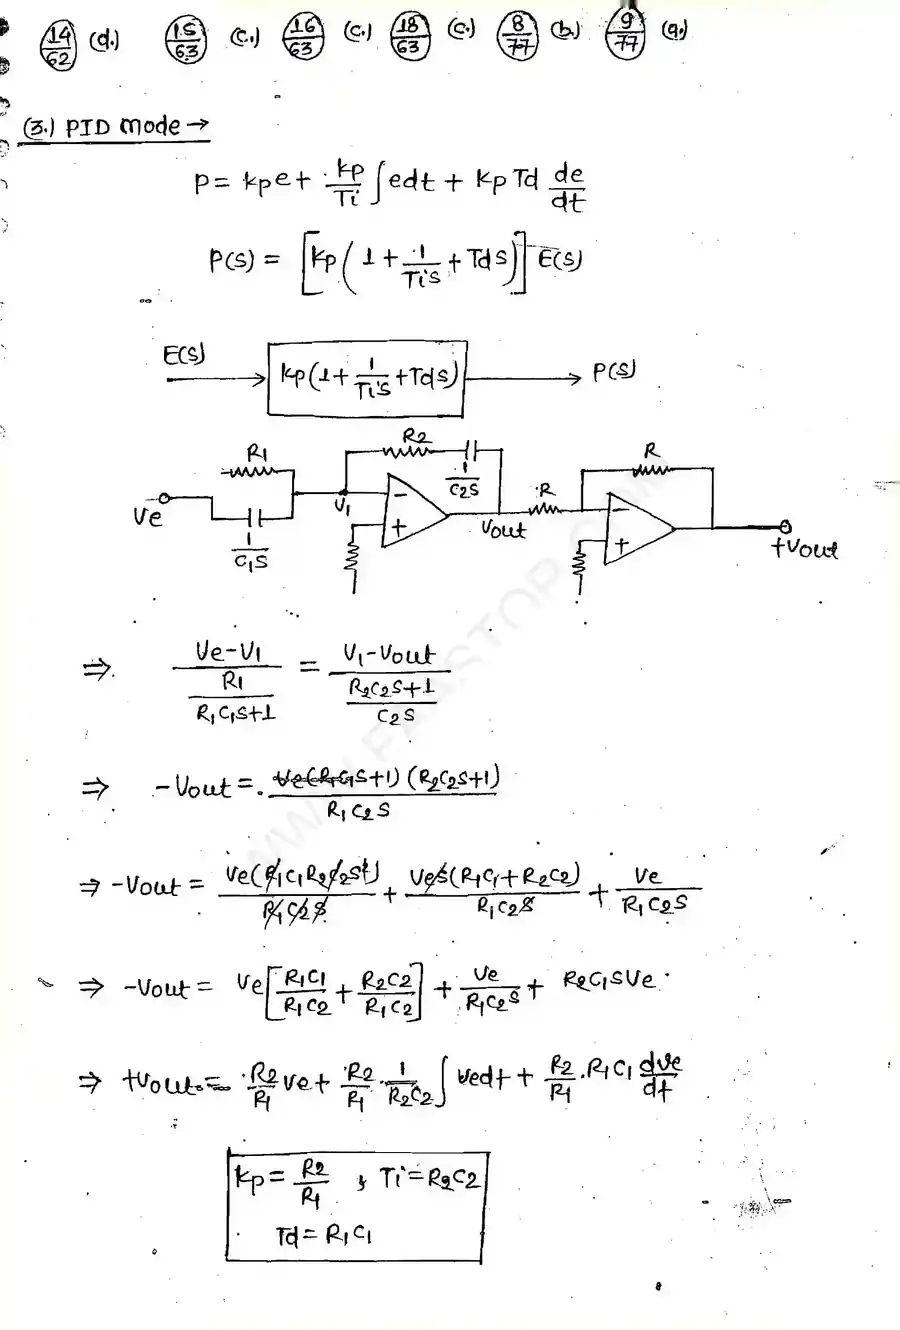 14/62 (d.) 15/63 (c.) 16/63 (c.) 18/63 (c.) 8/77 (b.) 9/77 (a.)
(3.) PID mode →
P = kpe + kp/Ti ∫edt + kp Td de/dt
P(s) = [kp(1 + 1/Tis + Tds)] E(s)
E(s) kp(1 + 1/Tis + Tds) P(s)
R1 R2 R
1/C2S R
Ve V1 Vout +Vout
1/C1S
⇒ (Ve-V1)/(R1/(R1C1S+1)) = (V1-Vout)/((R2C2S+1)/C2S)
⇒ -Vout = Ve(R1C1S+1)(R2C2S+1)/R1C2S
⇒ -Vout = Ve(R1C1R2C2S²)/R1C2S + VeS(R1C1+R2C2)/R1C2S + Ve/R1C2S
⇒ -Vout = Ve[R1C1/R1C2 + R2C2/R1C2] + Ve/R1C2S + R2C1SVe
⇒ +Vout = R2/R1 Ve + R2/R1 . 1/R2C2 ∫Vedt + R2/R1 . R1C1 dVe/dt
kp = R2/R1 , Ti = R2C2
Td = R1C1